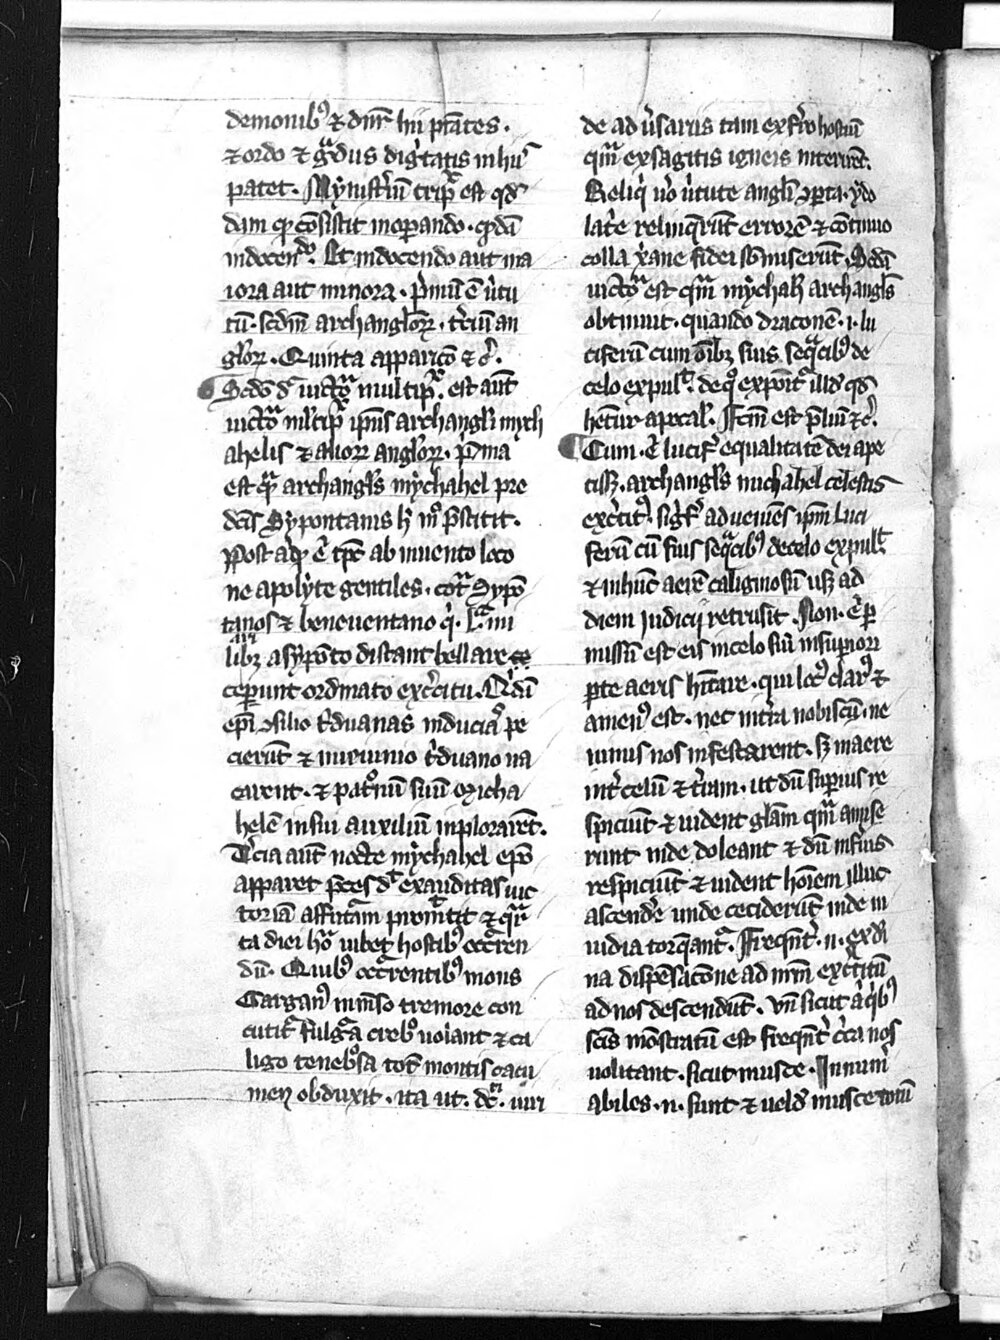 demonib⁹ ⁊ dnr̄ hii p̄tātes .
⁊ ordo ⁊ gᵃdus dig̅tatis in hu⁹
patet . Mỹnistiũ tripᵃ est qd̃
dam qᷓ cõsistit in oꝑando . qdã
indocendo . Et indocendo aut ma
iora aut minora . p̃mũ ẽ ũtu
tũ . scdm̃ archangloꝝ . t̃ciũ an
gloꝝ . Quinta apparicõ ⁊ c̃ .
Scdo d̃ victoᵃ multipᵃ . est aut̃
victoᵃ ml̃tipᵃ ipius archangl̃i mych
ahelis ⁊ alioꝝ angloꝝ . p̃ma
est qᷓ archangl̃s mẏchahel pre
dc̃is Sypontanis h̃ mº p̃stitit .
Post aliq̃ ẽ tp̃c ab invento loco
neapolẏte gentiles . cotᵃ Sypõ
tanos ⁊ beneventano q̇ . Lᵃ mi
libꝫ asẏpõto distant bellare
ceperunt ordinato ex̃citu . Q̇ dũ
ep̃i ꝯsilio t̃duanas inducias pe
cierũt ⁊ ieiunio t̃duano va
carent . ⁊ patºnũ suũ micha
helẽ in sui auxiliũ inplorarẽt .
T̃cia aut̃ nocte mẏchahel epõ
apparet p̃ces d̃t exauditas vic
toriã affutãm promittit ⁊ qᷓr
ta diei hᵃ iubet hostib⁹ occᷓren
dũ . Quib⁹ occᷓrentib⁹ mons
Gargan⁹ im̃so tremore con
cutit̃ fulgᵃa creb⁹ volant ⁊ ca
ligo tenebºsa totũ montis cacu
men obduxit . ita ut . dc̃ . viri
de ad ũsariis tam ex fr̃ro hostiũ
qm̃ ex sagitis igneis interirẽt .
Reliq̇ ṽo ũtute angl̃i ꝯperta . ydo
lat̃e relinq̃rũt errorẽ ⁊ cõtinuo
colla x̃ane fidei sb̃miserũt . Scdã
victoᵃ est qm̃ mẏchahl̃ archangl̃s
obtinuit . quando draconẽ . i . lu
ciferũ cum oĩbꝫ suis seqᵃcib⁹ de
celo expul̃t . de qº exponit̃ illd̃ qd̃
hẽtur apocal̃ . Fc̃m est p̃liũ ⁊ c̃ .
Cum . ẽ lucif̃ equalitatẽ dei ape
tissꝫ . archangl̃s michahel celestis
ex̃cit⁹ . sig̃f̃ adveniẽs ipm̃ luci
ferũ cũ suis seqᵃcib⁹ de celo expul̃t
⁊ in hũc aerẽ caliginosũ usꝫ ad
diem judicij retrusit . Non . ẽ ꝑ
missũ est eis in celo siũ in supiori
ꝑte aeris hĩtare . qui loc⁹ clar⁹ ⁊
amen⁹ est . nec int̃ra nobiscũ . ne
nimis nos infestarent . Sꝫ in aere
int̃ celũ ⁊ t̃ram . ut dũ superius re
spiciũt ⁊ vident gl̃am qm̃ amise
runt inde doleant ⁊ dũ inferius
respiciũt ⁊ vident hoĩem illuc
ascend̃e unde ceciderũt inde in
vidia torqᵃant̃ . Freqñt̃ . n . ex di
na dispẽsacõne ad nr̃m ex̃citiũ
ad nos descendũt . Vñ sicut a q̇b⁹
sc̃is mõstratũ est freqñt̃ c̃ca nos
volitant . sicut musce . Innum̃
abiles . n . sunt ⁊ veld̃ musce totũ